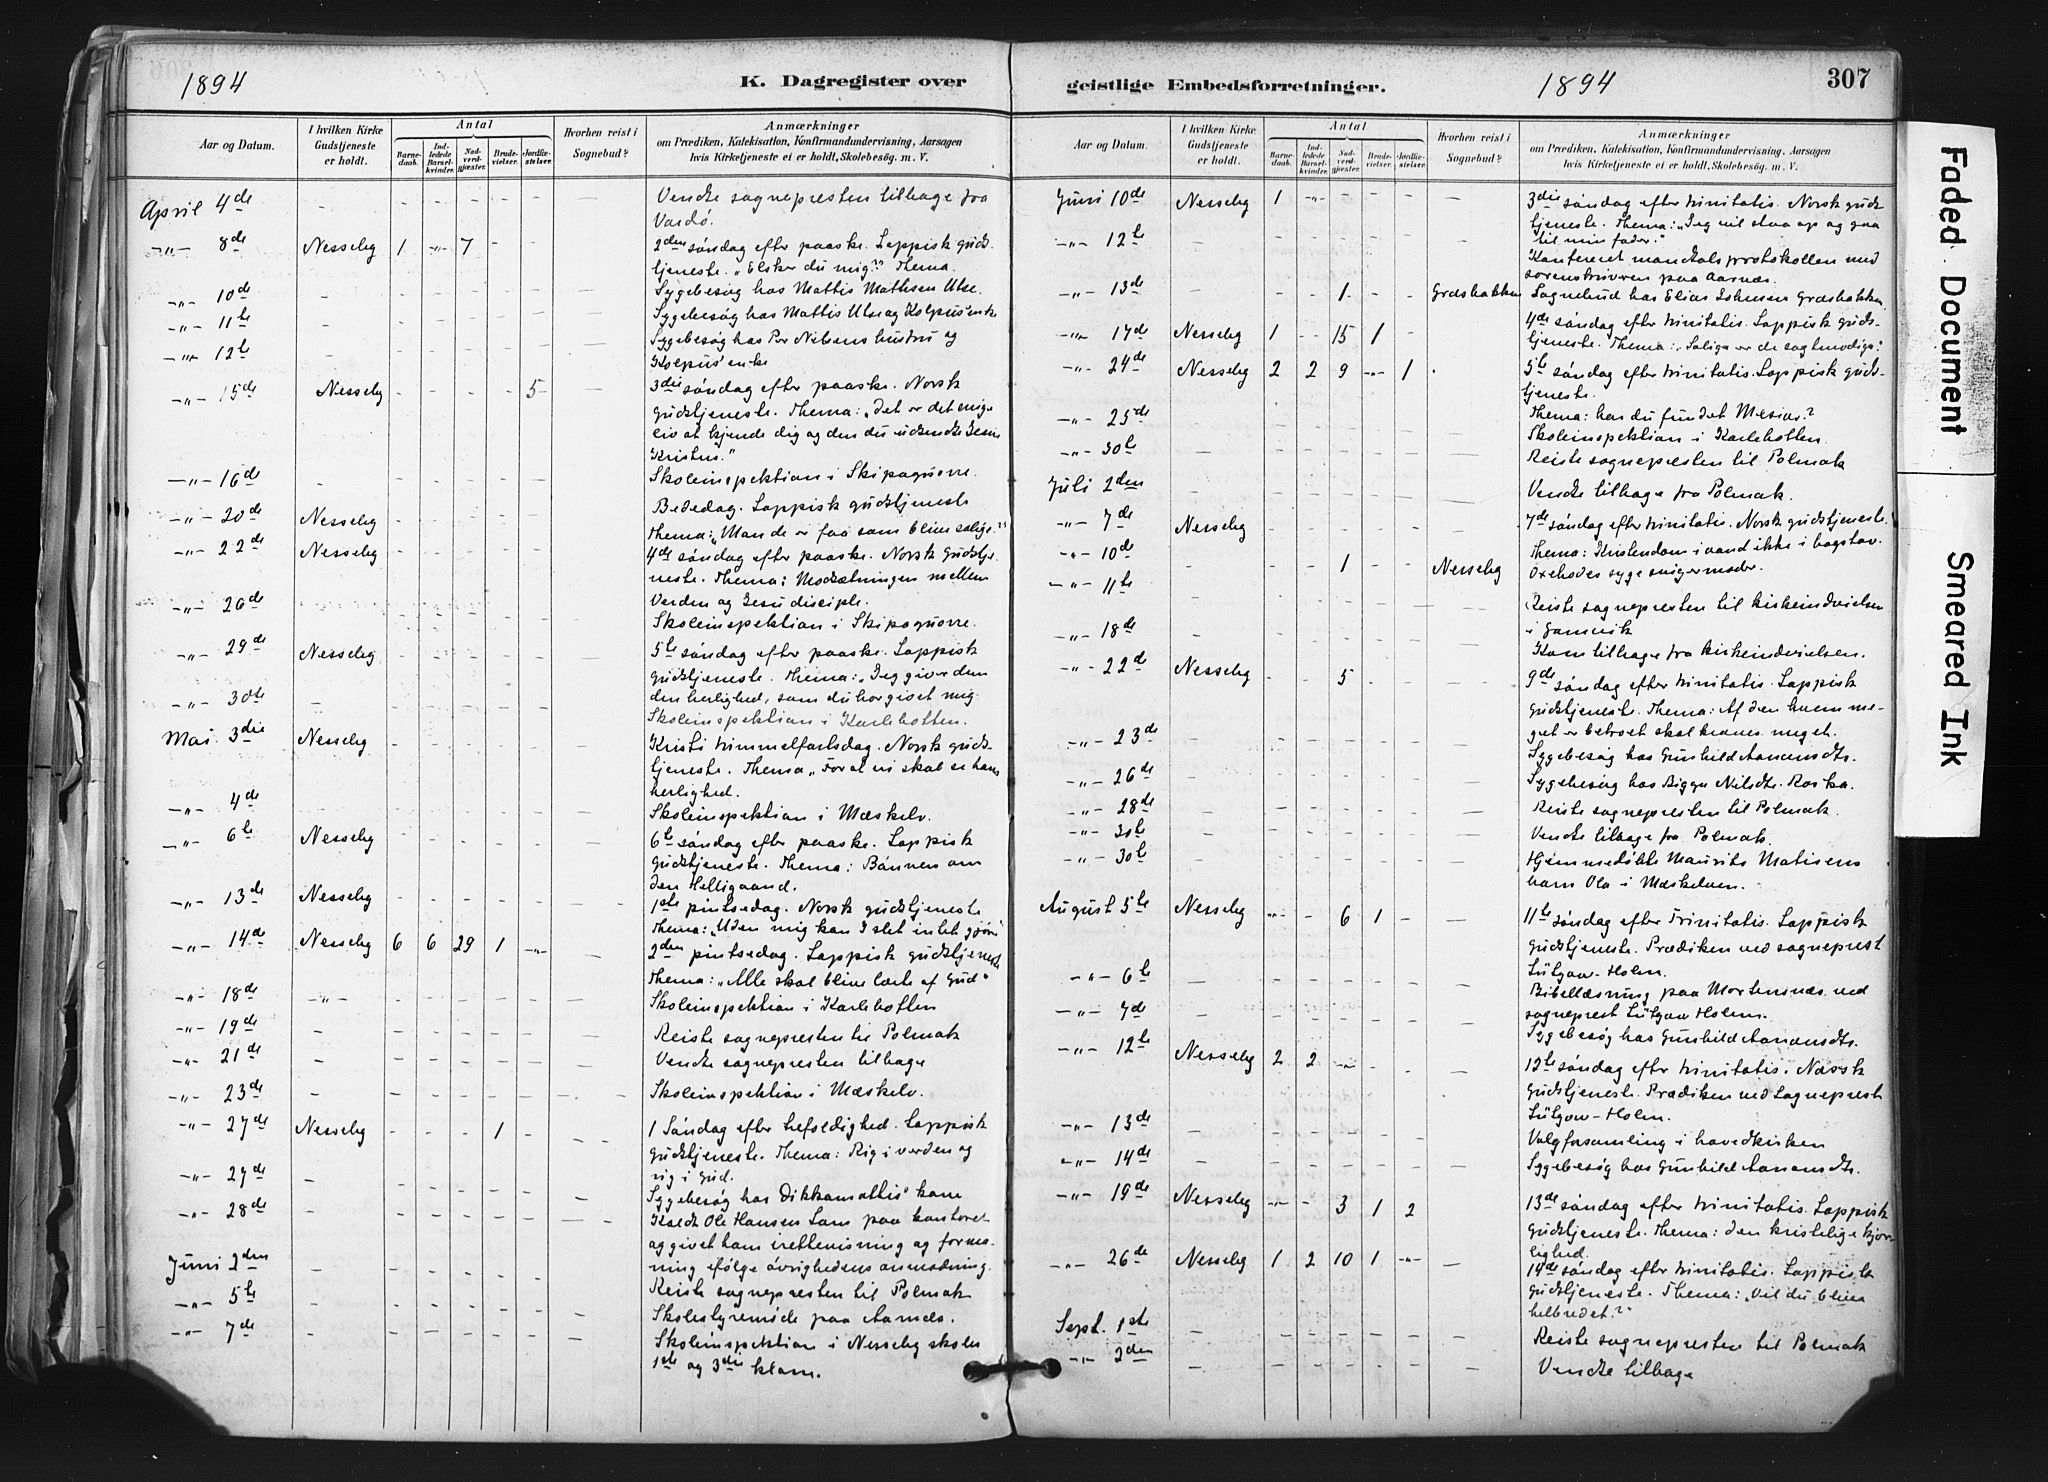 1894
K. Dagregister over
Aar og Datum.
I hvilken Kirke Gudstjeneste er holdt.
Antal
Barnedaab.
Indledede Barselkvinder.
Nadverdgjæster.
Brudevielser.
Jordfæstelser.
Hvorhen reist i Sognebud?
Anmærkninger
om Prædiken, Katekisation, Konfirmandundervisning, Aarsagen
hvis Kirketjeneste ei er holdt, Skolebesøg. m. V.
April 4de - - - - - - - Vendte sognepresten tilbage fra
Vardø.
-"- 8de Nesseby 1 -"- 7 - - - 2den søndag efter paaske. Lappisk guds-
tjeneste. „Elsker du mig?" Thema.
-"- 10de - - - - - - - Sygebesøg hos Mattis Mathisen Utse.
-"- 11te - - - - - - - Sygebesøg hos Mattis Utse og Kolpus' enke
-"- 12te - - - - - - - Sygebesøg hos Per Nilsens hustru og
Kolpus' enke
-"- 15de Nesseby - - - - 5 - 3die søndag efter paaske. Norsk
gudstjeneste. Thema: „Det er det evige
liv at kjende dig og den du udsendte Jesus
Kristus."
-"- 16de - - - - - - - Skoleinspektion i Skipagurre.
-"- 20de Nesseby - - - - - - Bededag. Lappisk gudstjeneste
Thema: „Mon de er faa som blive salige?"
-"- 22de Nesseby - - - - - - 4de søndag efter paaske. Norsk Gudstje-
neste. Thema: Modsætningen mellem
Verden og Jesu disciple.
-"- 26de - - - - - - - Skoleinspektion i Skipagurre.
-"- 29de Nesseby - - - - - - 5te søndag efter paaske. Lappisk
gudstjeneste. Thema: „Jeg giver dem
den herlighed, som du har givet mig.
-"- 30te - - - - - - - Skoleinspektion i Karlebotten.
Mai 3die Nesseby - - - - - - Kristi himmelfartsdag. Norsk guds-
tjeneste. Thema „For at vi skal se hans
herlighed.
-"- 4de - - - - - - - Skoleinspektion i Mæskelv.
-"- 6te Nesseby - - - - - - 6te søndag efter paaske. Lappisk
Gudstjeneste. Thema: Bønnen om
den Helligaand.
-"- 13de Nesseby - - - - - - 1ste pintsedag. Norsk gudstjeneste
Thema: „Uden mig kan I slet intet gjøre
-"- 14de Nesseby 6 6 29 1 -"- - 2den pintsedag. Lappisk gudstjeneste
Thema: „Alle skal blive lærte af Gud"
-"- 18de -"- - - - - - - Skoleinspektion i Karlebotten
-"- 19de - - - - - - - Reiste sognepresten til Polmak
-"- 21de - - - - - - - Vendte sognepresten tilbage
-"- 23de - - - - - - - Skoleinspektion i Mæskelv.
-"- 27de Nesseby - - - 1 - - 1 Søndag efter trefoldighed. Lappisk
gudstjeneste. Thema: Rig i verden og
rig i Gud.
-"- 27de - - - - - - - Sygebesøg hos Dikkamattis' kone
-"- 28de - - - - - - - Kaldt Ole Hansen Lam paa kontoret
og givet ham irettevisning og forma-
ning efølge øvrighedens anmodning.
Juni 2den - - - - - - - Reiste sognepresten til Polmak
-"- 5te - - - - - - - Skolestyremøde paa Aarnæs.
-"- 7de - - - - - - - Skoleinspektion i Nesseby skoles
1ste og 3die klasse.
geistlige Embedsforretninger.
1894
307
Aar og Datum.
I hvilken Kirke Gudstjeneste er holdt.
Antal
Barnedaab.
Indledede Barselkvinder.
Nadverdgjæster.
Brudevielser.
Jordfæstelser.
Hvorhen reist i Sognebud?
Anmærkninger
om Prædiken, Katekisation, Konfirmandundervisning, Aarsagen
hvis Kirketjeneste ei er holdt, Skolebesøg. m. V.
Juni 10de Nesseby 1 -"- - - - - 3die søndag efter trinitatis. Norsk guds-
tjeneste. Thema: „Jeg vil staa op og gaa
til min fader."
-"- 12te - - - - - - - Konfereret mandtalsprotokollen med
sorenskriveren paa Aarnæs.
-"- 13de - - - 1 - - Græsbakken Sognebud hos Elias Johnsen Græsbakken
-"- 17de Nesseby 1 - 15 1 - - 4de søndag efter trinitatis. Lappisk guds-
tjeneste. Thema: „Salige er de sagtmodige".
-"- 24de Nesseby 2 2 9 -"- 1 - 5te søndag efter trinitatis. Lappisk guds-
tjeneste.
Thema: har du fundet Mesias?
-"- 25de - - - - - - - Skoleinspektion i Karlebotten.
-"- 30te - - - - - - - Reiste sognepresten til Polmak
Juli 2den - - - - - - - Vendte tilbage fra Polmak.
-"- 7de Nesseby - - - - - - 7de søndag efter trinitatis. Norsk gudstjeneste.
Thema: Kristendom i aand ikke i bogstav.
-"- 10de - - - 1 - - Nesseby Oxehodes syge svigermoder.
-"- 11te - - - - - - - Reiste sognepresten til kirkeindvielsen
i Gamvik
-"- 18de - - - - - - - Kom tilbage fra kirkeindvielsen.
-"- 22de Nesseby - - 5 - - - 9de søndag efter trinitatis. Lappisk
gudstjeneste. Thema: Af den hvem me-
get er betroet skal kræves meget.
-"- 23de - - - - - - - Sygebesøg hos Gunhild Aanensdtr.
-"- 26de - - - - - - - Sygebesøg hos Bigga Nilsdtr. Roska.
-"- 28de - - - - - - - Reiste sognepresten til Polmak.
-"- 30te - - - - - - - Vendte tilbage fra Polmak.
-"- 30te - - - - - - - Hjemmedøbte Maurits Matisens
barn Ole i Mæskelven.
August 5te Nesseby -"- - 6 1 - - 11te søndag efter Trinitatis. Lappisk
gudstjeneste. Prædiken ved sogneprest
Lützow-Holm.
-"- 6te - - - - - - - Bibellæsning paa Mortensnæs ved
sogneprest Lützow Holm.
-"- 7de - - - - - - - Sygebesøg hos Gunhild Aanensdtr.
-"- 12te Nesseby 2 2 -"- - - - 12te søndag efter trinitatis. Norsk
Gudstjeneste. Prædiken ved Sogneprest
Lützow-Holm.
-"- 13de - - - - - - - Valgforsamling i hovedkirken
-"- 14de - - - - - - - Sygebesøg hos Gunhild Aanensdtr.
-"- 19de Nesseby -"- - 3 1 2 13de søndag efter trinitatis. Lappisk
gudstjeneste. Thema: den kristelige kjær-
lighed.
-"- 26de Nesseby 1 2 10 1 -"- - 14de søndag efter trinitatis. Lappisk
gudstjeneste. Thema: „Vil du blive
helbredet?"
Sept. 1ste - - - - - - - Reiste sognepresten til Polmak
-"- 2den - - - - - - - Vendte tilbage
Faded Document
Smeared Ink